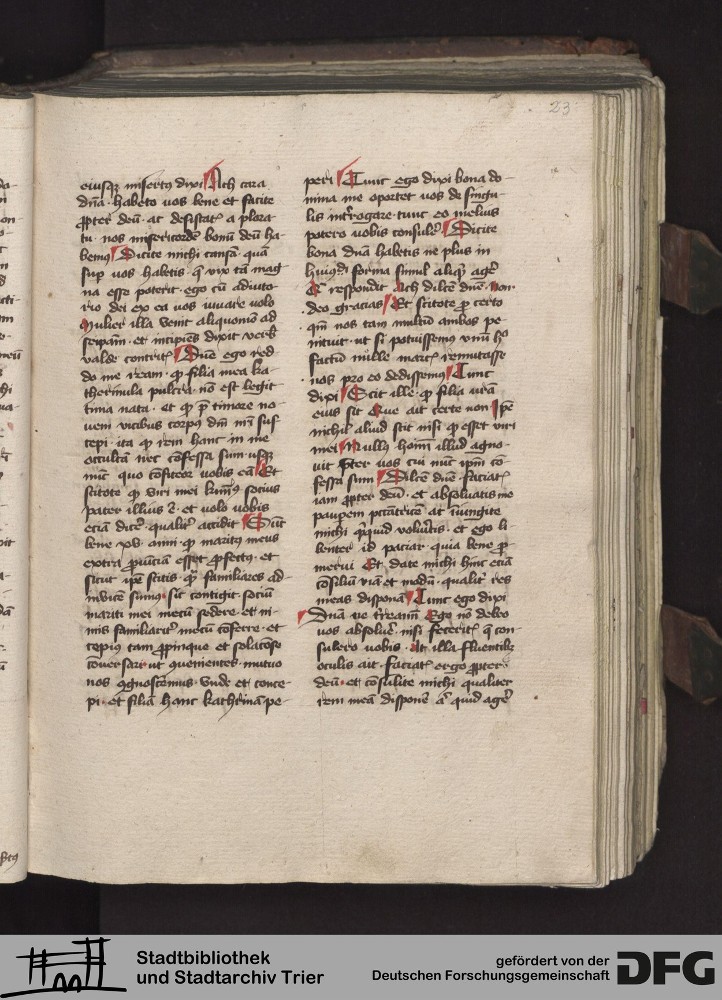 23
eiusque misertus dixi Ach cara
dna habeto vos bene et facite
propter deu at desistat a plora
tu nos misericorde bonu deu ha
bemus Dicite michi causa qua
sup vos habetis q vro ta mag
na esse poterit ego cu adiuto
rio dei ex ea vos iuuare volo
Mulier illa venit aliquoniens ad
seipam et incipies dixit verbis
valde contrite Dne ego red
do me ream q filia mea ka
therinula pulcra no est legit
tima nata et q p timore no
ueni vicibus corpus dni nri sus
cepi ita q rem hanc in me
occulta nec cofessa sum usque
nuc quo cofiteor vobis ea Et
scitote q viri mei socius
pater illius e et volo vobis
ecia dicere qualiter accidit Sunt
bene xv anni q maritus meus
extra puincia esset profectus et
sicut ipe scitis q familiares ad
inuice sumus sic contigit sociu
mariti mei mecu sedere et ni
mis familiariter mecu coferre et
cepimus tam propinque et solaciose
couersari ut quenientes mutuo
nos cognosceremus Unde et conce
pi et filia hanc katherina pe
peri Tunc ego dixi bona do
mina me oportet vos de singu
lis introgare tunc eo melius
potero vobis consulere Dicite
bona dna habetis ne plus in
huiusmodi forma simul aliquid agere
Et respondit Ach dilce dne non
deo gracias Et scitote p certo
qm nos tam multu ambos pe
nituit ut si potuissemus vnu ho
factu mille marcis remutasse
nos pro eo dedissemus Tunc
dixi Scit ille q filia vra
eius sit Que ait certe non ipe
nichil aliud scit nisi q esset viri
mei Nullus hoim illud agno
uit preter vos cui nuc ipm co
fessa sum Dilce dne faciatis
iam propter deu et absoluatis me
paupem peccatrice at iniungite
michi quicquid volueritis et ego li
benter id paciar quia bene p
merui Et date michi hinc ecia
cosiliu via et modu qualiter res
meas disponam Tunc ego dixi
Dna ve terream Ego no debeo
vos absoluere nisi feceritis q con
sulero vobis At illa fluentibus
oculis ait faciatis ergo propter
deu et cosulite michi qualiter
rem mea disponere aut quid agere
Stadtbibliothek
und Stadtarchiv Trier
gefördert von der
Deutschen Forschungsgemeinschaft
DFG